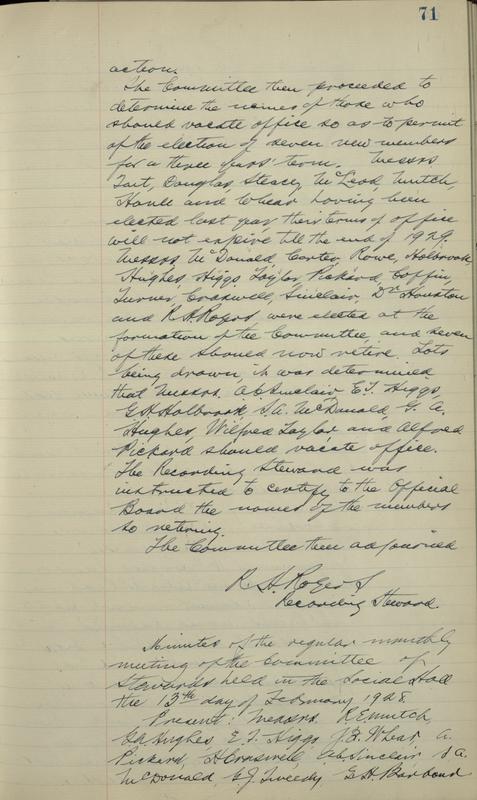 71
action.
The Committee then proceeded to
determine the names of those who
should vacate office so as to permit
of the election of seven new members
for a three years' term. Messrs
Tait, Douglas, Stacey, McLeod, Mutch,
and Whear having been
elected last year their terms of office
will not expire till the end of 1929
Messrs McDonald, Carter, Rowe, Holbrook,
Hughes, Higgs, Taylor, Pickard, Coffin,
Turner, Craswell, Sinclair, Dr Houston
and R.H. Rogers were elected at the
formation of the Committee, and seven
of these should now retire. Lots
being drawn, it was determined
that Messrs. A.E. Sinclair, E.T. Higgs
G.H. Holbrook, S.A. McDonald, G. A.
Hughes, Wilfred Taylor and Alfred
Pickard should vacate office.
The Recording Steward was
instructed to certify to the Official
Board the names of the members
so retiring.
The Committee then adjourned
R.H. Rogers
Recording Steward.
Minutes of the regular monthly
meeting of the Committee of
Stewards held in the Social Hall
the 13th day of February 1928.
Present: Messrs. R.E. Mutch,
G.A. Hughes, E.T. Higgs, J.B. Whear, A.
Pickard, H. Craswell, A.E. Sinclair, S.A.
McDonald, Tweedy, G.H.